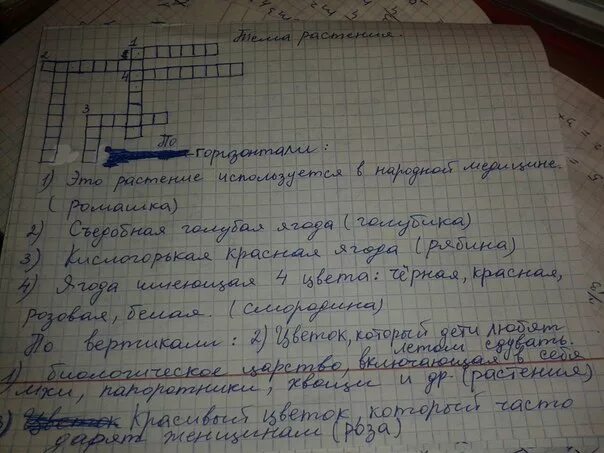 Тема растения.
1
2
4
3
По
горизонтали:
1) Это растение используется в народной медицине.
(ромашка)
2) Съедобная голубая ягода (голубика)
3) Кислогорькая красная ягода (рябина)
4) Ягода имеющая 4 цвета: чёрная, красная,
розовая, белая. (смородина)
По вертикали: 2) Цветок, который дети любят
летом сдувать.
1) биологическое царство, включающая в себя
мхи, папоротники, хвощи и др. (растения)
3) Цветок Красивый цветок, который часто
дарят женщинам (роза)